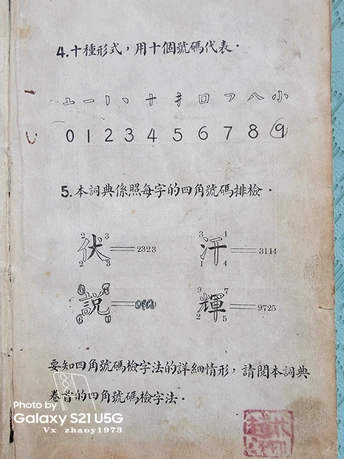 4.十種形式，用十個號碼代表．
亠 一 丨 丶 十 扌 口 ㄱ 八 小
0 1 2 3 4 5 6 7 8 9
5.本詞典係照每字的四角號碼排檢．
伏 2323 汗 3114
說 輝 9725
要知四角號碼檢字法的詳細情形，請閱本詞典
卷首的四角號碼檢字法．
Photo by
Galaxy S21 U5G
Vx zhaoy1973